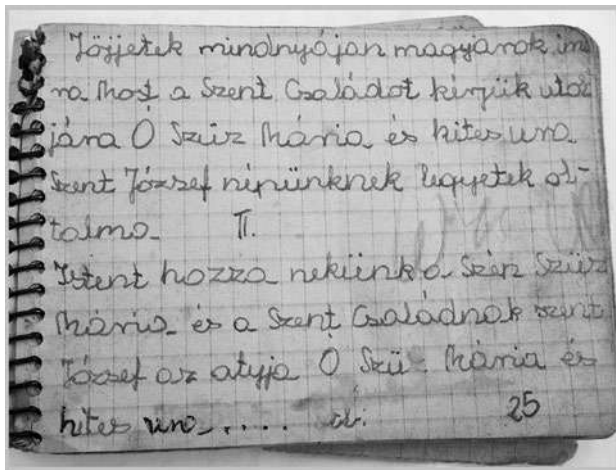 Jöjjetek mindnyájan magyarok im
ra Most a Szent Családot kérjük utol
jára Ó Szüz Mária és hites ura
Szent József népünknek legyetek ol-
talma II.
Istent hozza nekünk a Szép Szüz
Mária és a Szent Családnak szent
József az atyja Ó Szü- Mária és
hites ura....
25